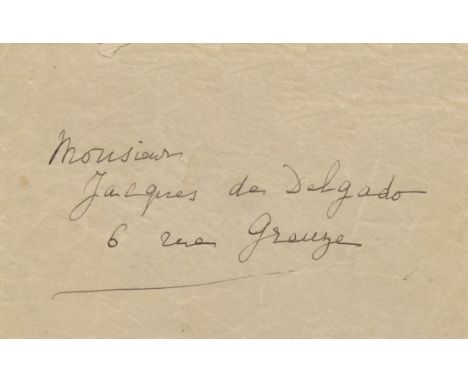 Monsieur
Jacques de Delgado
6 rue Greuze